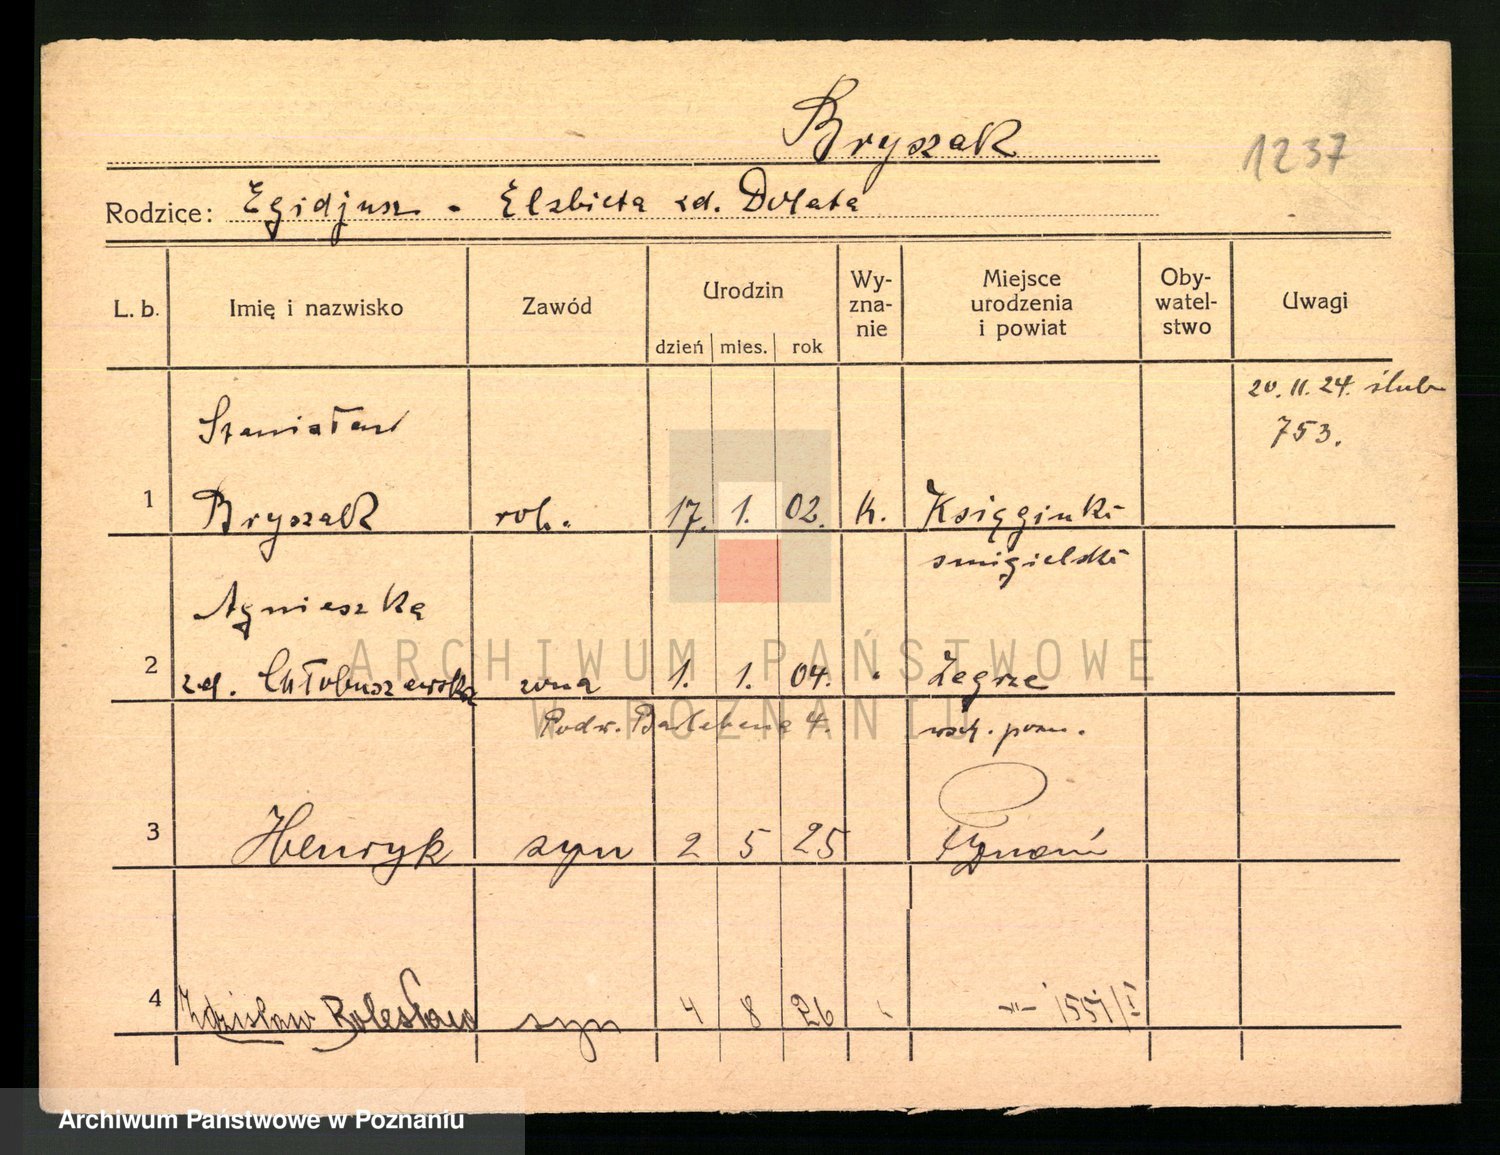 Bryszak
1237
Rodzice: Egidjusz - Elzbieta zd. Dolata
L. b.
Imię i nazwisko
Zawód
Urodzin
dzień mies. rok
Wy-
zna-
nie
Miejsce
urodzenia
i powiat
Oby-
watel-
stwo
Uwagi
20. 11. 24. ślub
753.
Stanisław
1 Bryszak rob. 17. 1. 02. k. Księginki
smigielski
Agnieszka
2 zd. Chłobuszewska zona 1. 1. 04. " Zegrze
Podw. 4. wsch. pozn.
3 Henryk syn 2 5 25 Poznań
4 Zdzisław Bolesław syn 4 8 26 " -"- 1551/I
ARCHIWUM PAŃSTWOWE
W POZNANIU
Archiwum Państwowe w Poznaniu